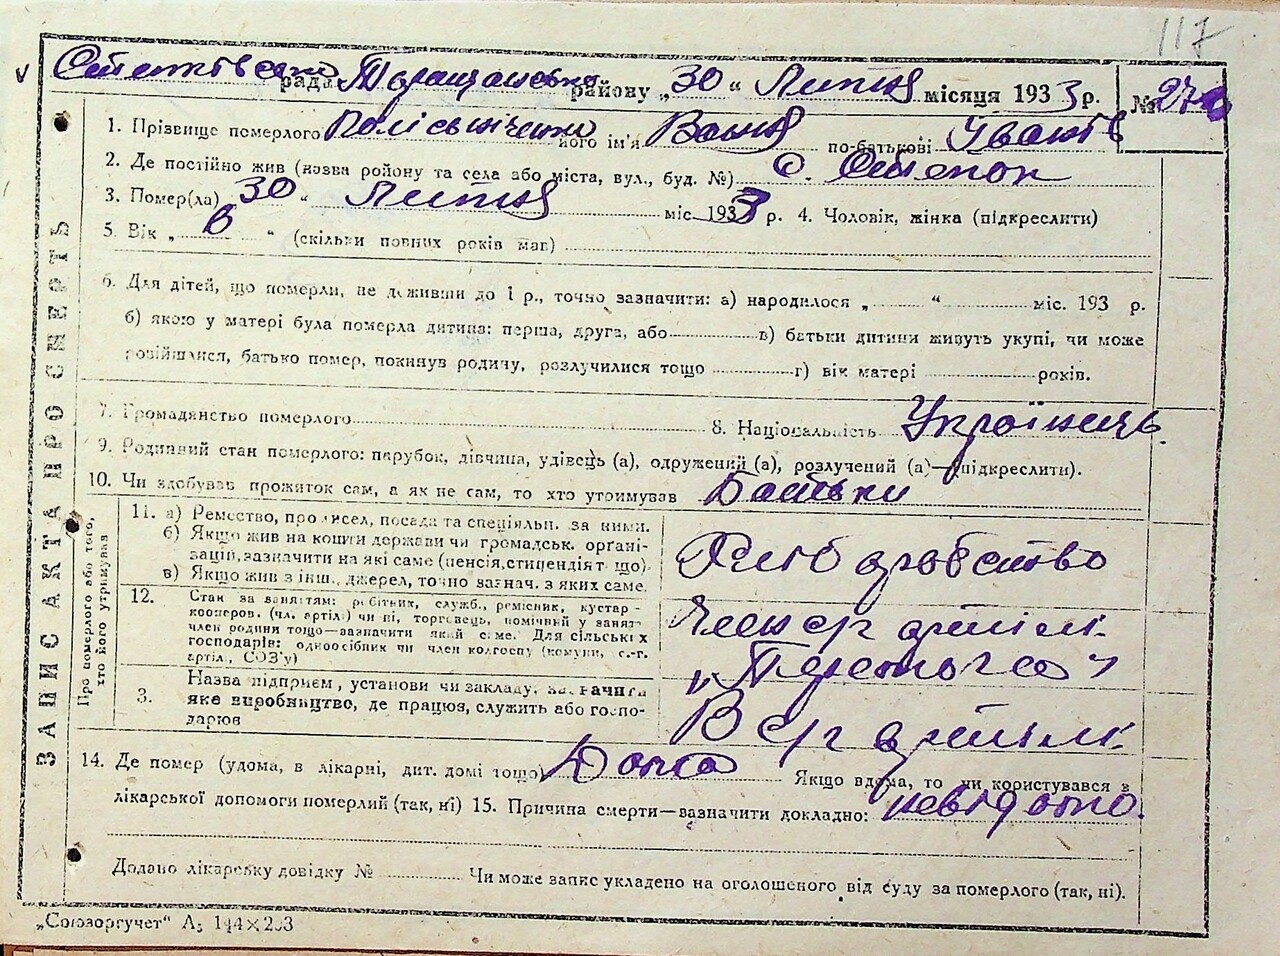 117
V Степківська рада Таращанського району „30“ Липня місяця 1933 р. №
1. Прізвище померлого Полісьніченко його ім'я Ваня по-батькові Іванів
2. Де постійно жив (назва району та села або міста, вул., буд. №) с. Степок
3. Помер(ла) „30“ Липня міс. 1933 р. 4. Чоловік, жінка (підкреслити)
5. Вік „ “ (скільки повних років мав)
6. Для дітей, що померли, не доживши до 1 р., точно зазначити: а) народилося „ “ міс. 193 р.
б) якою у матері була померла дитина: перша, друга, або в) батьки дитини живуть укупі, чи може
розійшлися, батько помер, покинув родичу, розлучилися тощо г) вік матері років.
7. Громадянство померлого 8. Національність Українець.
9. Родинний стан померлого: парубок, дівчина, удівець (а), одружений (а), розлучений (а)—(підкреслити).
10. Чи здобував прожиток сам, а як не сам, то хто утримував Батьки
ЗАПИСКА ПРО СМЕРТЬ
Про померлого або того, хто кого утримував
11. а) Ремество, промисел, посада та спеціяльн. за ними.
б) Якщо жив на кошти держави чи громадськ. орґані-
зацій, зазначити на які саме (пенсія, стипендія т. що)
в) Якщо жив з інш. джерел, точно зазнач. з яких саме.
Хліборобство
12. Стан за заняттям: робітник, служб., ремісник, кустар-
кооперов. (чл. артілі) чи ні, торговець, помічний у занят.
член родини тощо—зазначити який саме. Для сільських
господарів: одноосібник чи член колгоспу (комуни, с.-г.
артіл., СОЗ'у)
Член с/г артілі
3. Назва підприєм., установи чи закладу, зазначити
яке виробництво, де працює, служить або госпо-
дарює
В с/г артілі.
14. Де помер (удома, в лікарні, дит. домі тощо) Дома Якщо вдома, то чи користувався з
лікарської допомоги померлий (так, ні) 15. Причина смерти—вазначити докладно: невідомо.
Додано лікарську довідку № Чи може запис укладено на оголошеного від суду за померлого (так, ні).
„Союзоргучет“ А5 144×203